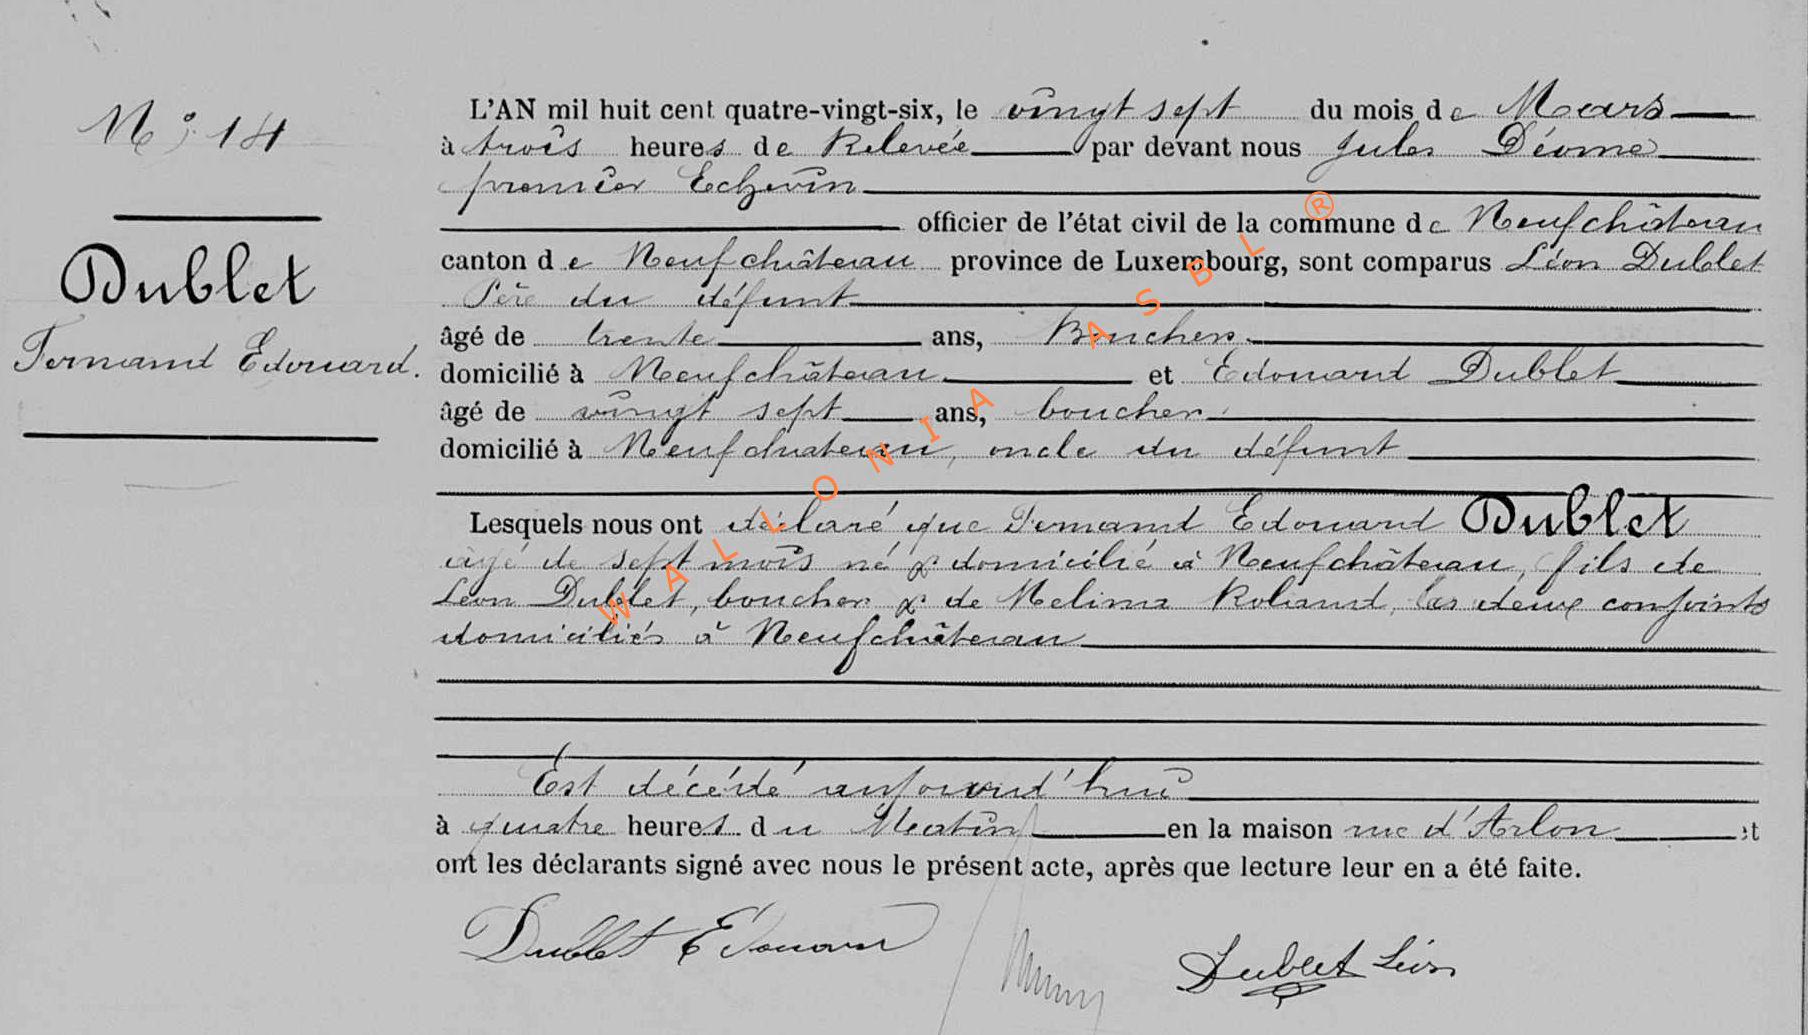 N° 14
Dublet
Fernand Edouard.
L'AN mil huit cent quatre-vingt-six, le vingt sept du mois de Mars
à trois heures de Relevée par devant nous Jules Déome
premier Echevin
officier de l'état civil de la commune de Neufchâteau
canton de Neufchâteau province de Luxembourg, sont comparus Léon Dublet
Père du défunt
âgé de trente ans, Boucher
domicilié à Neufchâteau et Edouard Dublet
âgé de vingt sept ans, boucher
domicilié à Neufchateau, oncle du défunt
Lesquels nous ont déclaré que Fernand Edouard Dublet
âgé de sept mois né & domicilié à Neufchâteau, fils de
Léon Dublet, boucher & de Melina Roland, les deux conjoints
domiciliés à Neufchâteau
Est décédé aujourd'hui
à quatre heures du Matin en la maison rue d'Arlon et
ont les déclarants signé avec nous le présent acte, après que lecture leur en a été faite.
Dublet Edouard
Dublet Léon
WALLONIA ASBL ®